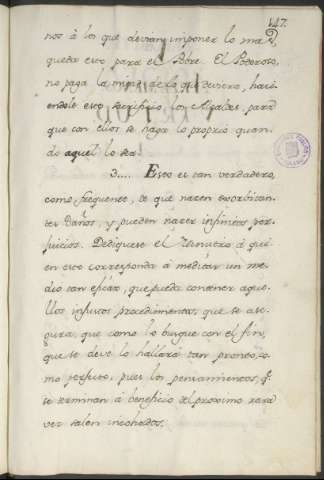 147.
nos à los que devian imponer lo mas, 
queda esto para el Pobre. El Poderoso,
no paga la mitad de lo que deviera, haci-
endole este sacrificio los Alcaldes para
que con ellos se haga lo proprio quan-
do aquel lo sea.
3.... Esto es tan verdadero,
como frequente, de que nacen exorbitan-
tes Daños, y pueden nacer infinitos per-
juicios. Dediquese el Ministro à quien
en esto corresponda à meditar un me-
dio tan eficaz, que pueda contener aque-
llos injustos procedimientos, que se ase-
gura, que como lo busque con el fin,
que se deve lo hallarà tan pronto, co-
mo perfecto, pues los pensamientos, qe.
se terminan à beneficio del proximo rara
vez salen incohados.